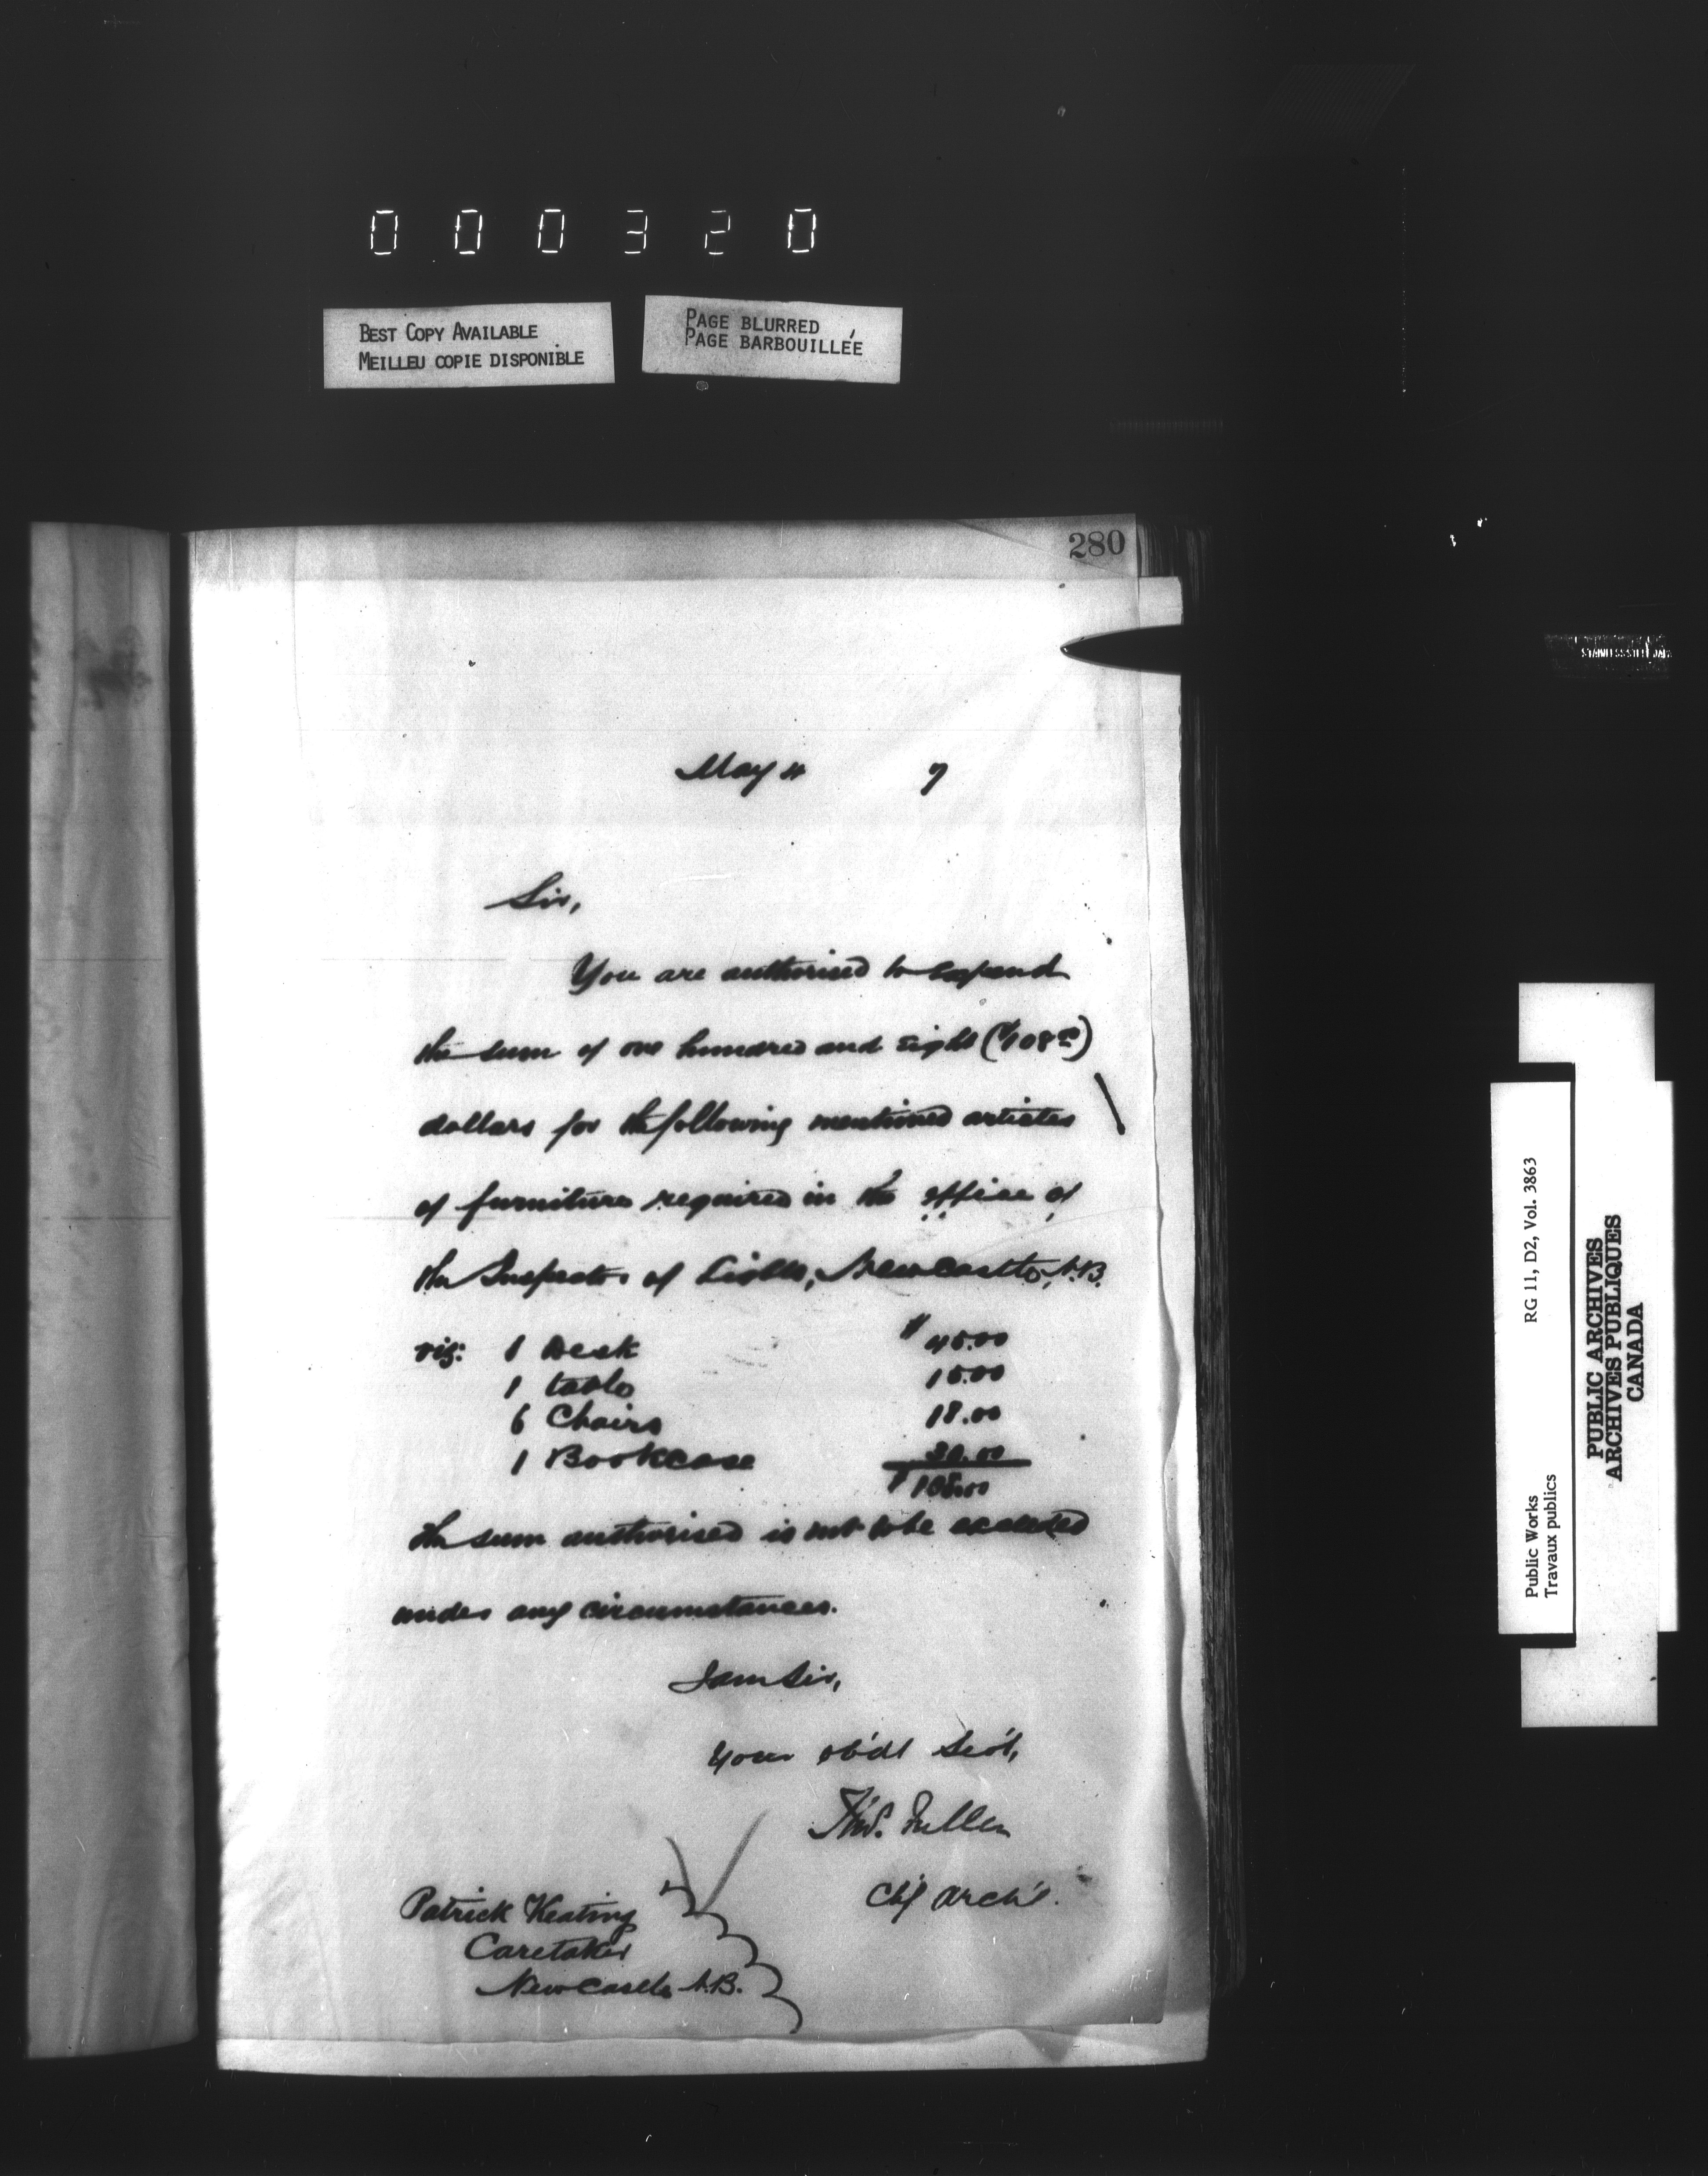 000320
BEST COPY AVAILABLE
MEILLEU COPIE DISPONIBLE
PAGE BLURRED
PAGE BARBOUILLÉE
280
May 4 7
Sir,
You are authorised to expend
the sum of one hundred and eight ($108.00)
dollars for the following mentioned articles
of furniture required in the office of
the Inspector of Lights, Newcastle, N.B.
viz: 1 Desk $45.00
1 table 15.00
6 Chairs 18.00
1 Bookcase 30.00
$108.00
The sum authorised is not to be exceeded
under any circumstances.
I am Sir,
Your ob'dt Serv't,
Thos. Fuller
Ch'f Arch't.
Patrick Keating
Caretaker
Newcastle N.B.
STAINLESS STEEL JAPAN
Public Works
Travaux publics
RG 11, D2, Vol. 3863
PUBLIC ARCHIVES
ARCHIVES PUBLIQUES
CANADA